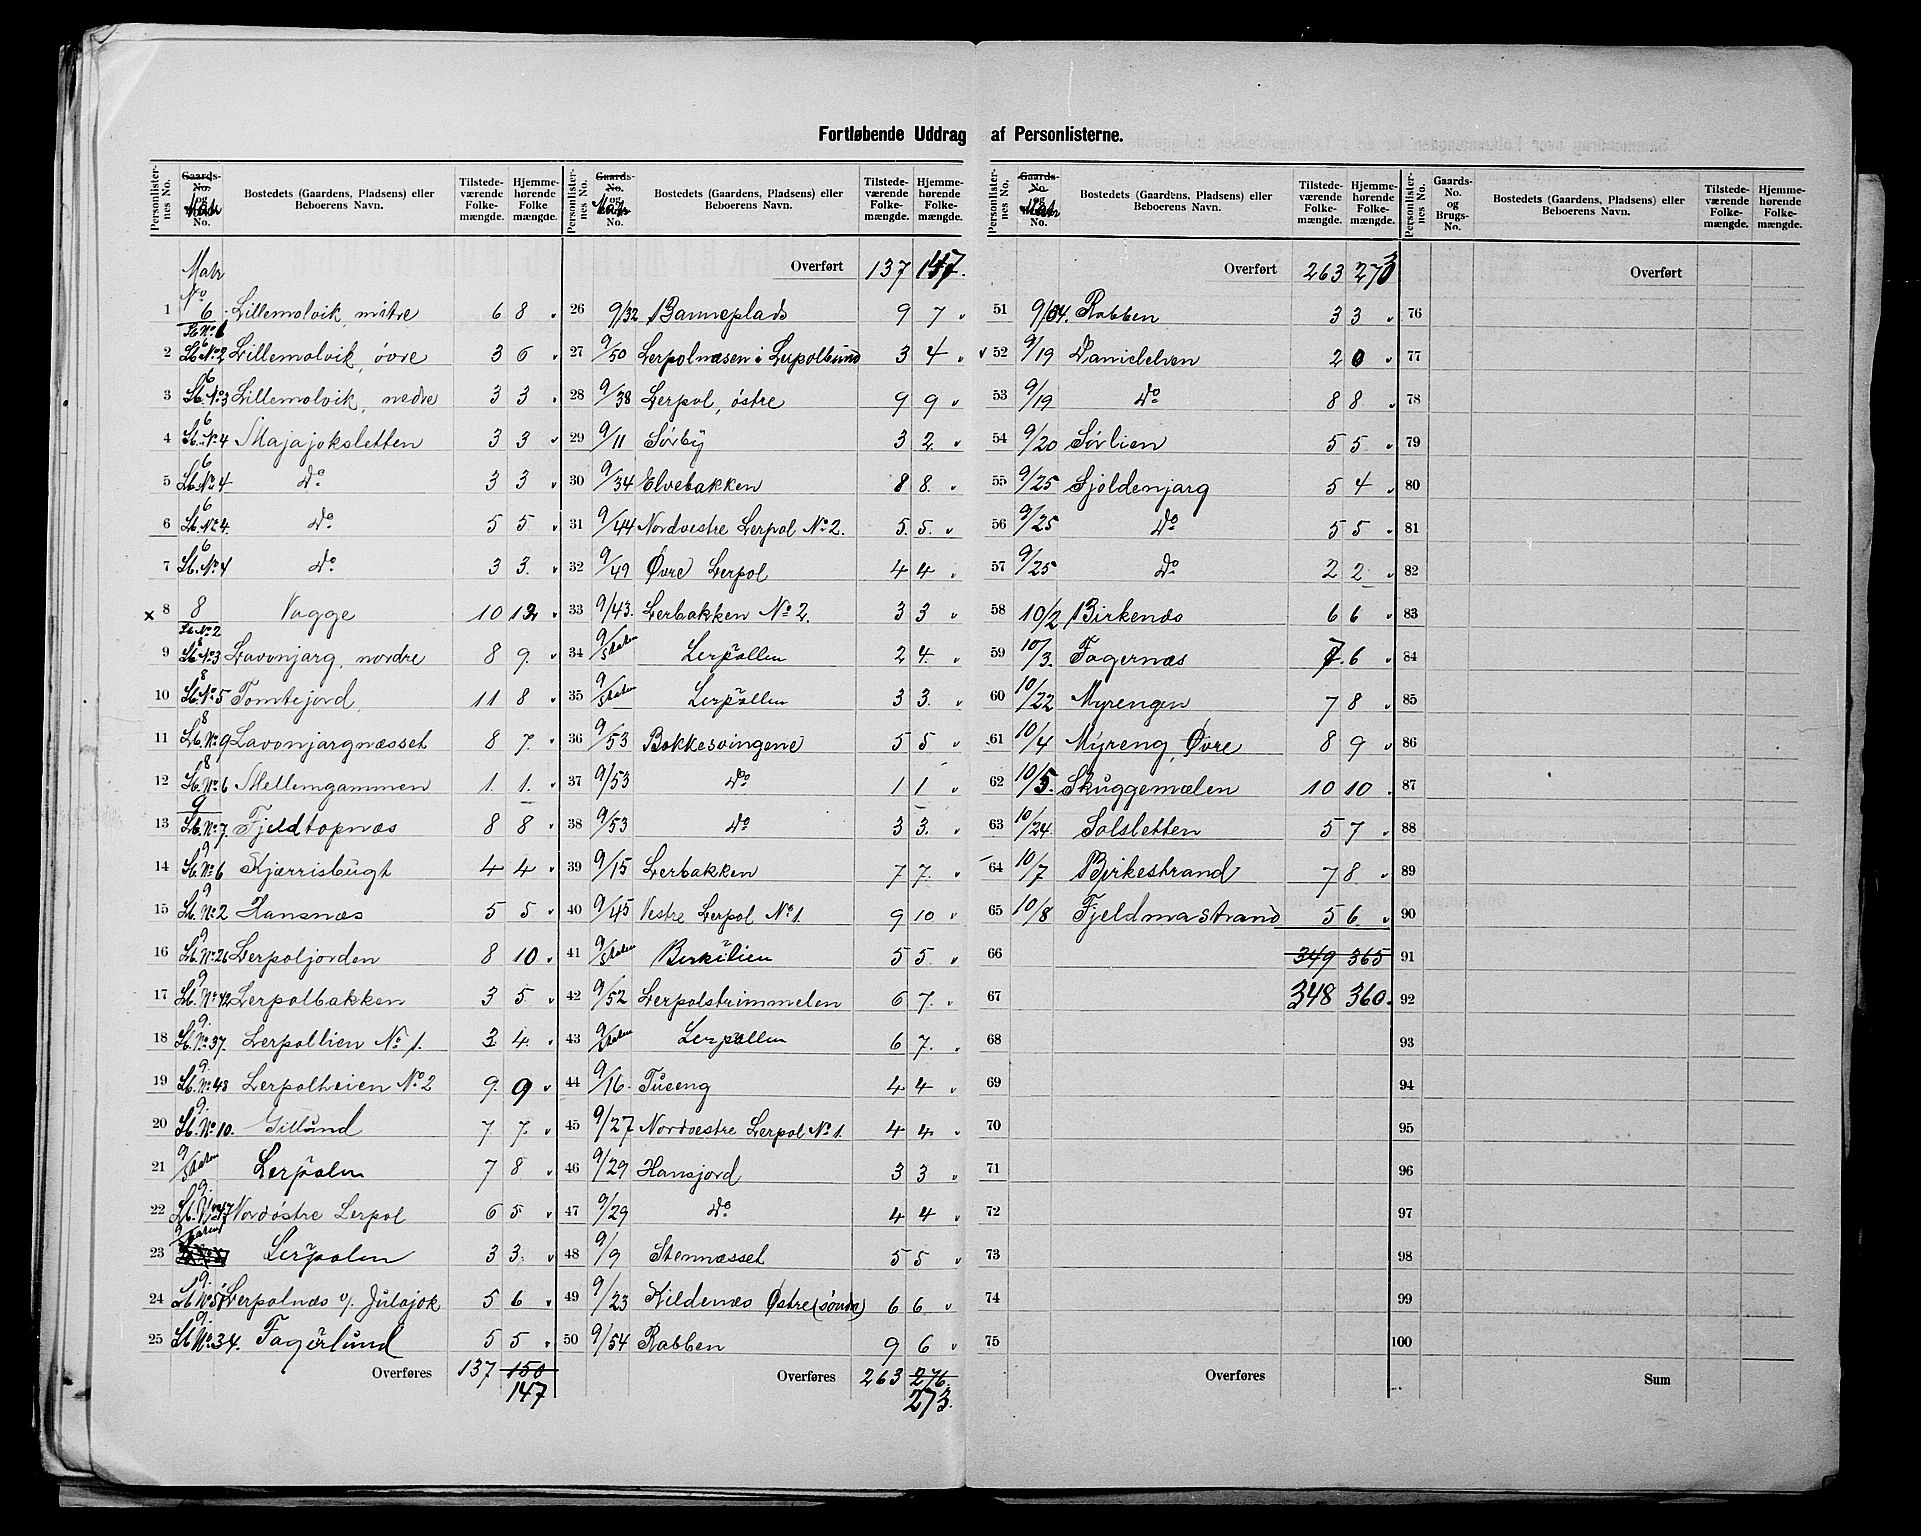 Fortløbende Uddrag af Personlisterne.
Personlister-nes No. Gaards-No. og Matr No. Bostedets (Gaardens, Pladsens) eller Beboerens Navn. Tilstede-værende Folke-mængde. Hjemme-hørende Folke-mængde.
Matr No
1 6 Lb No 1 Lillemolvik, mitre 6 8
2 6 Lb No 2 Lillemolvik, øvre 3 6
3 6 Lb. No 3 Lillemolvik, nedre 3 3
4 6 Lb. No 4 Majajoksletten 3 3
5 6 Lb. No 4 Do 3 3
6 6 Lb. No 4. Do 5 5
7 6 Lb. No 4 Do 3 3.
x 8 8 Lb No 2 Vagge 10 12
9 8 Lb No 3 Lavonjarg, nordre 8 9.
10 8 Lb. No 5 Tomtejord, 11 8
11 8 Lb. No 9 Lavonjargnæsset 8 7.
12 8 Lb. No 6 Mellemgammen 1. 1.
13 9 Lb. No 7. Fjeldtopnæs 8 8
14 9 Lb. No 6 Skjærrisbugt 4 4
15 9 Lb. No 2 Hansnæs 5 5
16 9 Lb. No 26 Lerpoljorden 8 10
17 9 Lb. No 42 Lerpolbakken 3 5
18 9. Lb. No 37. Lerpollien No 1. 3 4.
19 9. Lb. No 48 Lerpolheien No 2 9. 9
20 9. Lb. No 10. Gillund 7 7.
21 9/Staten Lerpolen 7 8
22 9. Lb. No 47 Nordøstre Lerpol 6 5
23 9/Staten Lerpolen 3 3.
24 9. Lb No 51 Lerpolnæs v/. Julajok 5 6
25 9. Lb No. 34. Fagerlund 5 5
Overføres 137 150
147
Personlister-nes No. Gaards-No. og Matr No. Bostedets (Gaardens, Pladsens) eller Beboerens Navn. Tilstede-værende Folke-mængde. Hjemme-hørende Folke-mængde.
Overført 137 147.
26 9/32 Banneplads 9 7
27 9/50 Lerpolnæsen i Lerpolbund 3 4
28 9/38 Lerpol, østre 9 9
29 9/11 Sørby 3 2
30 9/34 Elvebakken 8 8.
31 9/44 Nordvestre Lerpol No 2. 5. 5.
32 9/49 Øvre Lerpol 4 4
33 9/43. Lerbakken No 2. 3 3
34 9/Staten Lerpollen 2 4.
35 9/Staten Lerpollen 3 3.
36 9/53 Bakkesvingene 5 5
37 9/53 Do 1 1
38 9/53 Do 3 3.
39 9/15 Lerbakken 7 7.
40 9/45 Vestre Lerpol No 1. 9 10
41 9/Staten Birkilien 5 5
42 9/52 Lerpolstrimmelen 6 7.
43 9/Staten Lerpollen 6 7.
44 9/16. Tueeng 4 4
45 9/27 Nordvestre Lerpol No 1. 4 4.
46 9/29 Hansjord 3 3
47 9/29 Do 4 4
48 9/9 Stennæsset 5 5
49 9/23 Kildenæs Østre (søndre) 6 6.
50 9/54 Rabben 9 6
Overføres 263 276.
273.
Personlister-nes No. Gaards-No og Matr No. Bostedets (Gaardens, Pladsens) eller Beboerens Navn. Tilstede-værende Folke-mængde. Hjemme-hørende Folke-mængde.
Overført 263 273
51 9/54. Rabben 3 3
52 9/19 Danielelven 2 0
53 9/19 Do 8 8
54 9/20 Sørlien 5 5
55 9/25 Sjoldenjarg 5 4
56 9/25 Do 5 5
57 9/25 Do 2 2
58 10/2 Birkenæs 6 6
59 10/3. Fagernæs 7. 6
60 10/22 Myrengen 7 8
61 10/4 Myreng, Øvre 8 9
62 10/5. Skuggemælen 10 10
63 10/24. Solsletten 5 7
64 10/7 Birkestrand 7 8
65 10/8 Fjeldmastrand 5 6
66 349 365
67 348 360
68
69
70
71
72
73
74
75
Overføres
Personlister-nes No. Gaards-No. og Brugs-No. Bostedets (Gaardens, Pladsens) eller Beboerens Navn. Tilstede-værende Folke-mængde. Hjemme-hørende Folke-mængde.
Overført
76
77
78
79
80
81
82
83
84
85
86
87
88
89
90
91
92
93
94
95
96
97
98
99
100
Sum